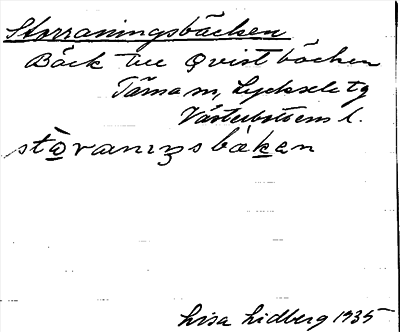 Storraningsbäcken
Bäck till Qvistbäcken
Tärna sn, Lycksele tg
Västerbottens l.
stɷ̀raniŋsbäkən
Lisa Lidberg 1935